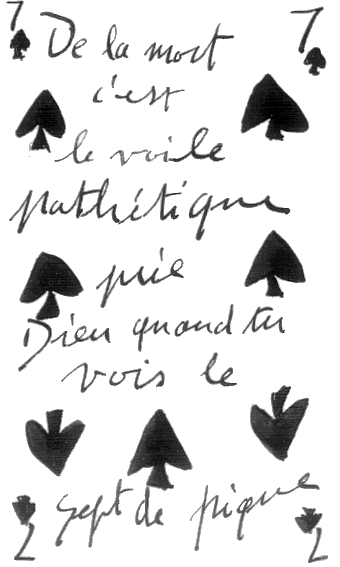 7 7
De la mort
c'est
le voile
pathétique
prie
Dieu quand tu
vois le
sept de pique
7 7